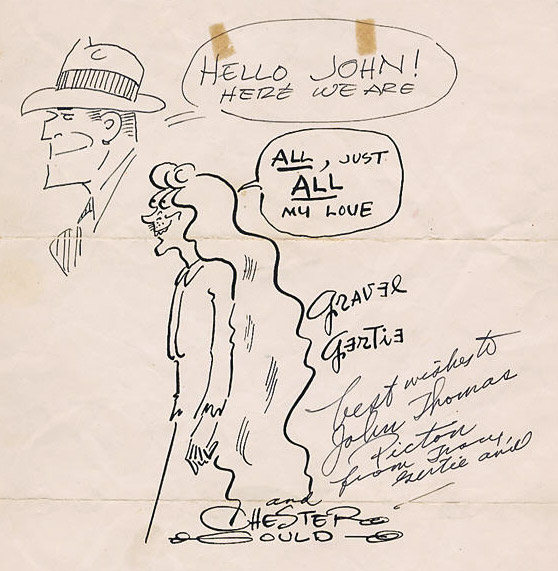 HELLO JOHN!
HERE WE ARE
ALL, JUST
ALL
MY LOVE
GRAVEL
GERTIE
best wishes to
John Thomas
Picton
from Tracy,
Gertie and
and
CHESTER
GOULD